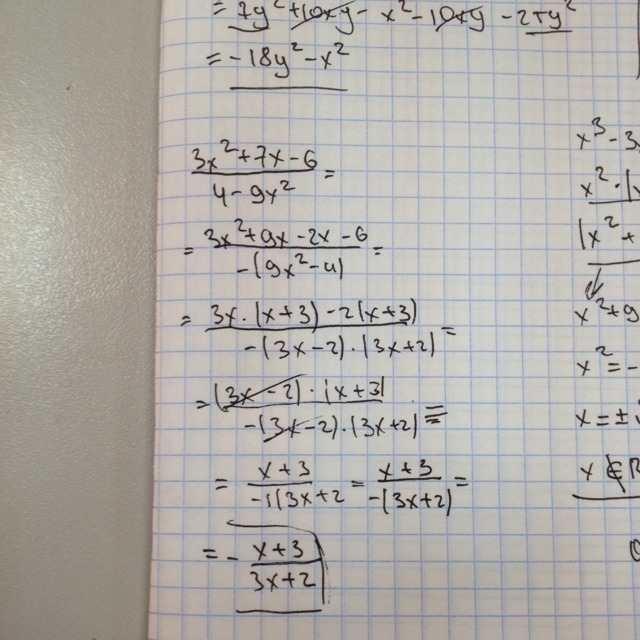 = 7y² + 10xy - x² - 10xy - 25y²
= -18y² - x²
(3x² + 7x - 6)/(4 - 9x²) =
= (3x² + 9x - 2x - 6)/(-(9x² - 4)) =
= (3x · (x+3) - 2(x+3))/(-(3x-2) · (3x+2)) =
= ((3x-2) · (x+3))/(-(3x-2) · (3x+2)) =
= (x+3)/(-1(3x+2) = (x+3)/(-(3x+2)) =
= - (x+3)/(3x+2)
x³ - 3
x² ·
(x² +
x² + 9
x² = -
x = ±
x ∉ R